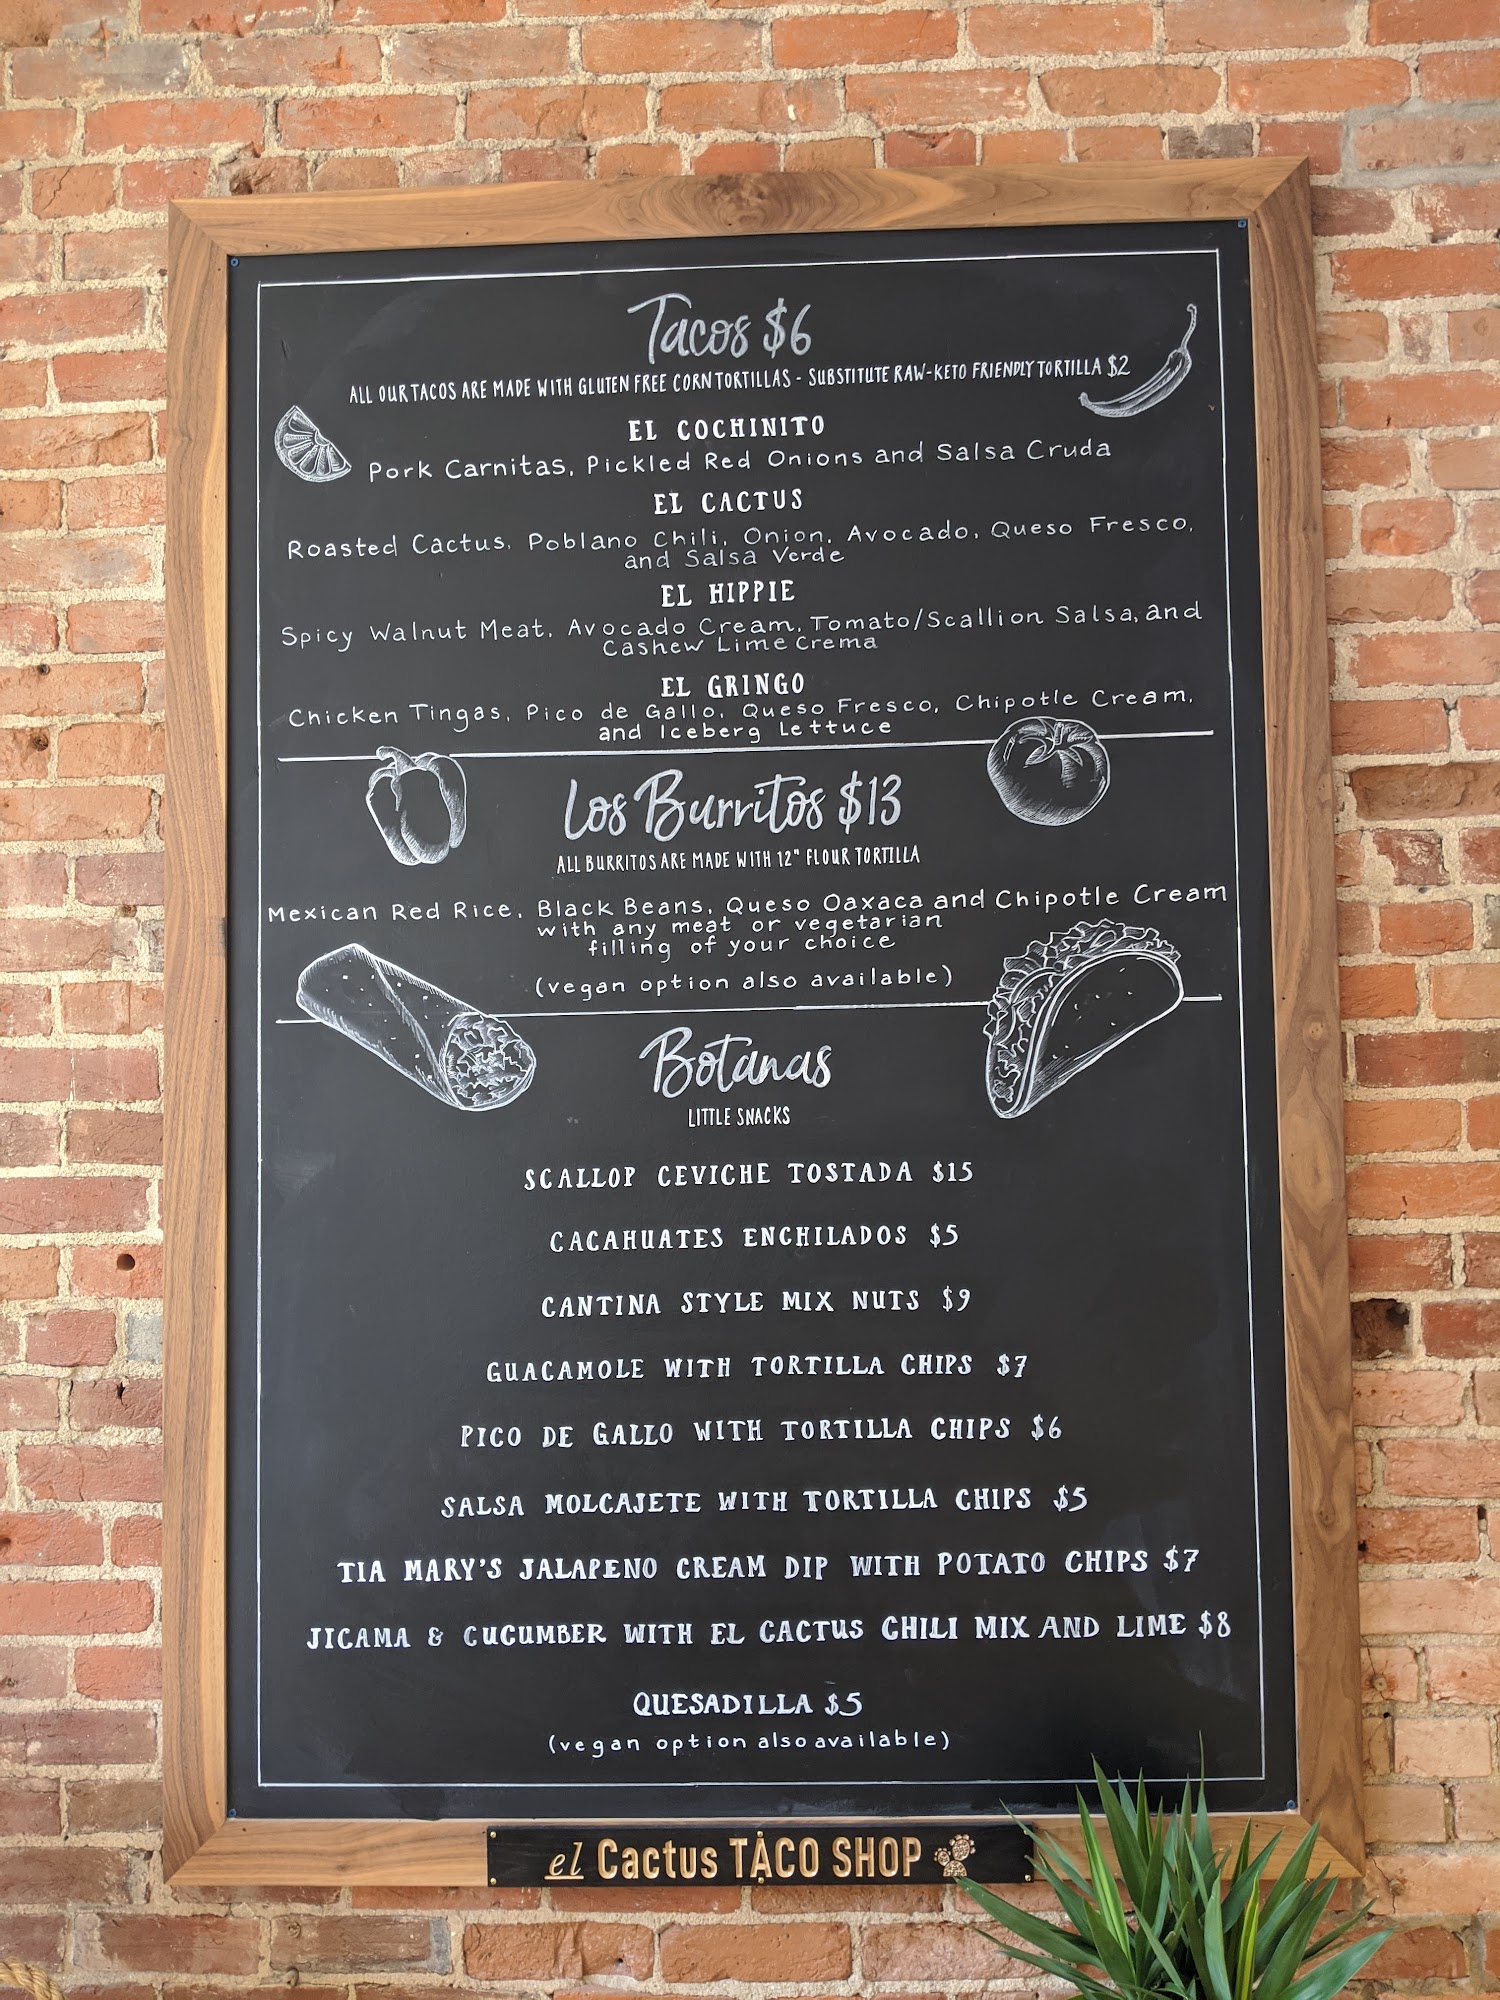 Tacos $6
ALL OUR TACOS ARE MADE WITH GLUTEN FREE CORN TORTILLAS - SUBSTITUTE RAW-KETO FRIENDLY TORTILLA $2
EL COCHINITO
Pork Carnitas, Pickled Red Onions and Salsa Cruda
EL CACTUS
Roasted Cactus, Poblano Chili, Onion, Avocado, Queso Fresco,
and Salsa Verde
EL HIPPIE
Spicy Walnut Meat, Avocado Cream, Tomato/Scallion Salsa, and
Cashew Lime Crema
EL GRINGO
Chicken Tingas, Pico de Gallo, Queso Fresco, Chipotle Cream,
and Iceberg Lettuce
Los Burritos $13
ALL BURRITOS ARE MADE WITH 12" FLOUR TORTILLA
Mexican Red Rice, Black Beans, Queso Oaxaca and Chipotle Cream
with any meat or vegetarian
filling of your choice
(vegan option also available)
Botanas
LITTLE SNACKS
SCALLOP CEVICHE TOSTADA $15
CACAHUATES ENCHILADOS $5
CANTINA STYLE MIX NUTS $9
GUACAMOLE WITH TORTILLA CHIPS $7
PICO DE GALLO WITH TORTILLA CHIPS $6
SALSA MOLCAJETE WITH TORTILLA CHIPS $5
TIA MARY'S JALAPENO CREAM DIP WITH POTATO CHIPS $7
JICAMA & CUCUMBER WITH EL CACTUS CHILI MIX AND LIME $8
QUESADILLA $5
(vegan option also available)
el Cactus TACO SHOP